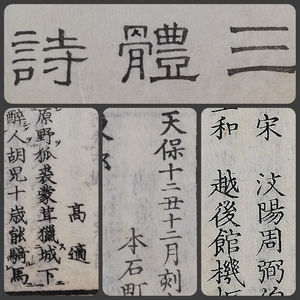 三體詩
高適
原野狐裘蒙茸獵城下
醉人胡兒十歲能騎馬
天保十二丑十二月刻
本石町
宋 汶陽周弼
和 越後館機